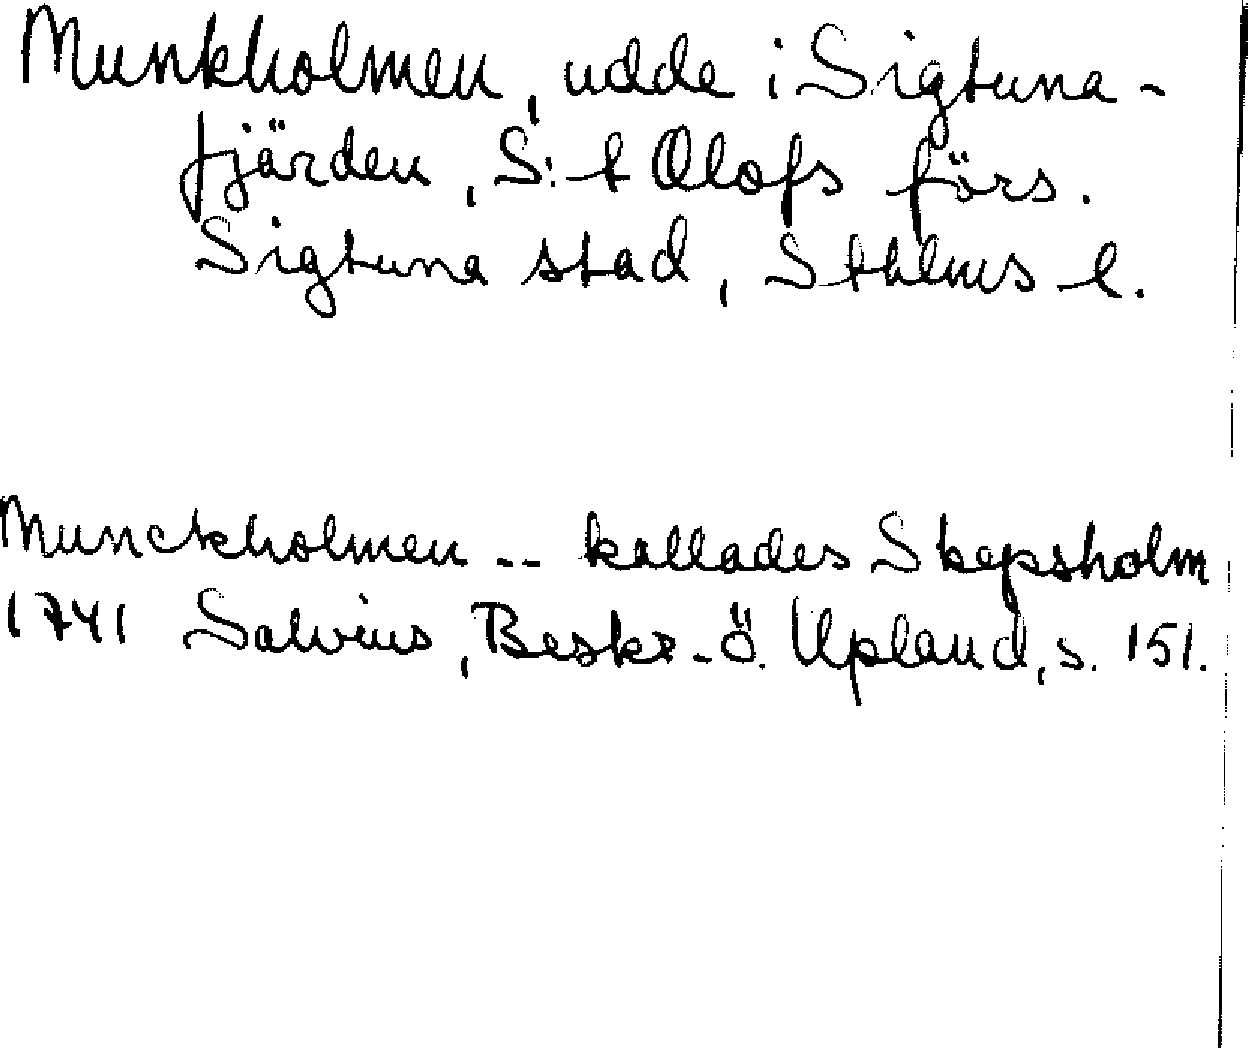 Munkholmen, udde i Sigtuna-
fjärden, S:t Olofs förs.
Sigtuna stad, Sthlms l.
Munckholmen -- kallades Skepsholm
1741 Salvius, Beskr. ö. Upland, s. 151.